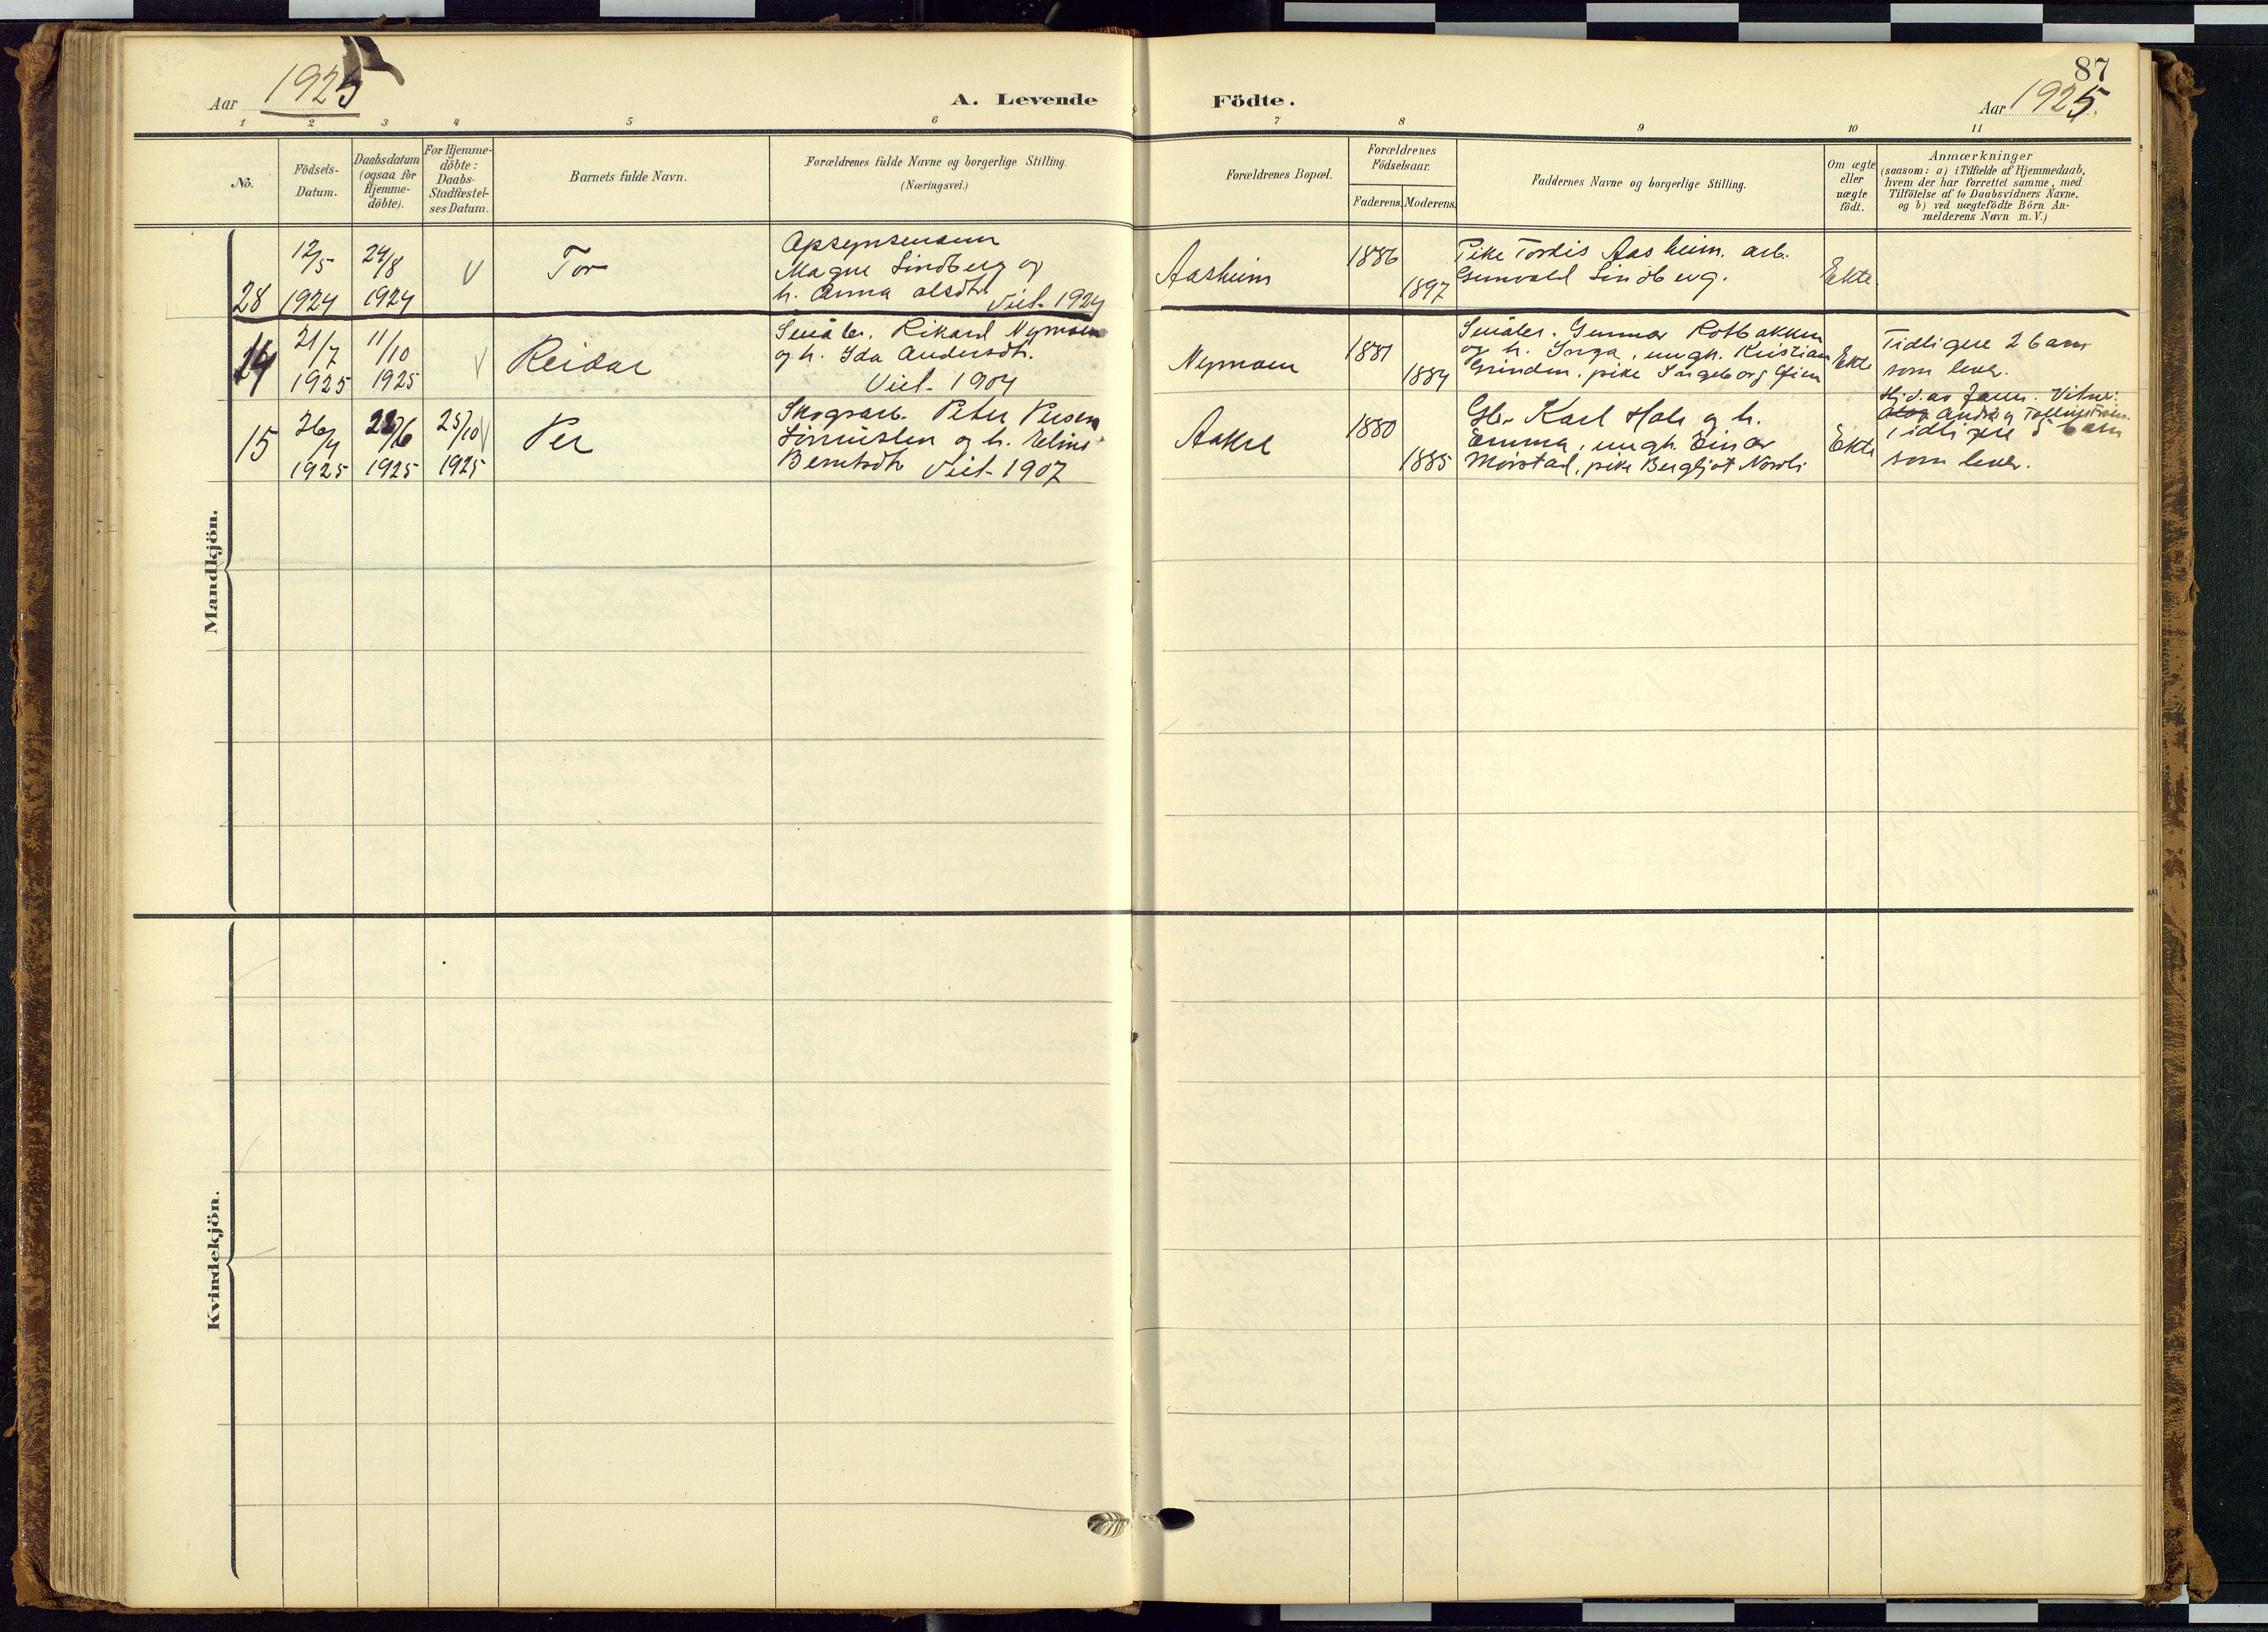 87
Aar 1925
A. Levende Födte.
Aar 1925.
1 2 3 4 5 6 7 8 9 10 11
No.
Födsels-
Datum.
Daabsdatum
(ogsaa for
Hjemme-
döbte).
For Hjemme-
döbte:
Daabs-
Stadfæstel-
ses Datum.
Barnets fulde Navn.
Forældrenes fulde Navne og borgerlige Stilling.
(Næringsvei.)
Forældrenes Bopæl.
Forældrenes
Födselsaar.
Faderens.
Moderens.
Faddernes Navne og borgerlige Stilling.
Om ægte
eller
uægte
födt.
Anmærkninger
(saasom: a) i Tilfælde af Hjemmedaab,
hvem der har forrettet samme, med
Tilföielse af to Daabsvidners Navne,
og b) ved uægtefödte Börn An-
melderens Navn m. V.)
Mandkjön.
28
12/5
1924
24/8
1924
V
Tor
Opsynsmann
Magne Lindberg og
h. Anna Olsdtr.
Viet 1924
Aasheim
1886
1897
Pike Tordis Aasheim. arb.
Gunvald Lindberg.
Ekte
14
21/7
1925
11/10
1925
V
Reidar
Småbr. Rikard Nymoen
og h. Ida Andersdtr.
Viet 1904
Nymoen
1881
1884
Småbr. Gunnar Rotbakken
og h. Inga, ungk. Kristian
Grinden, pike Ingeborg
Ekte
Tidligere 2 barn
som lever.
15
26/4
1925
28/6
1925
25/10
1925
V
Per
Skogsarb. Peter Persen
og h. Eline
Berntsdtr. Viet 1907
Aakre
1880
1885
Gbr. Karl Hole og h.
Emma, ungk. Einar
Mörstad, pike Bergljot Nordli
Ekte
Hj.d. av Vitne:
Tidligere 5 barn
som lever.
Kvindekjön.